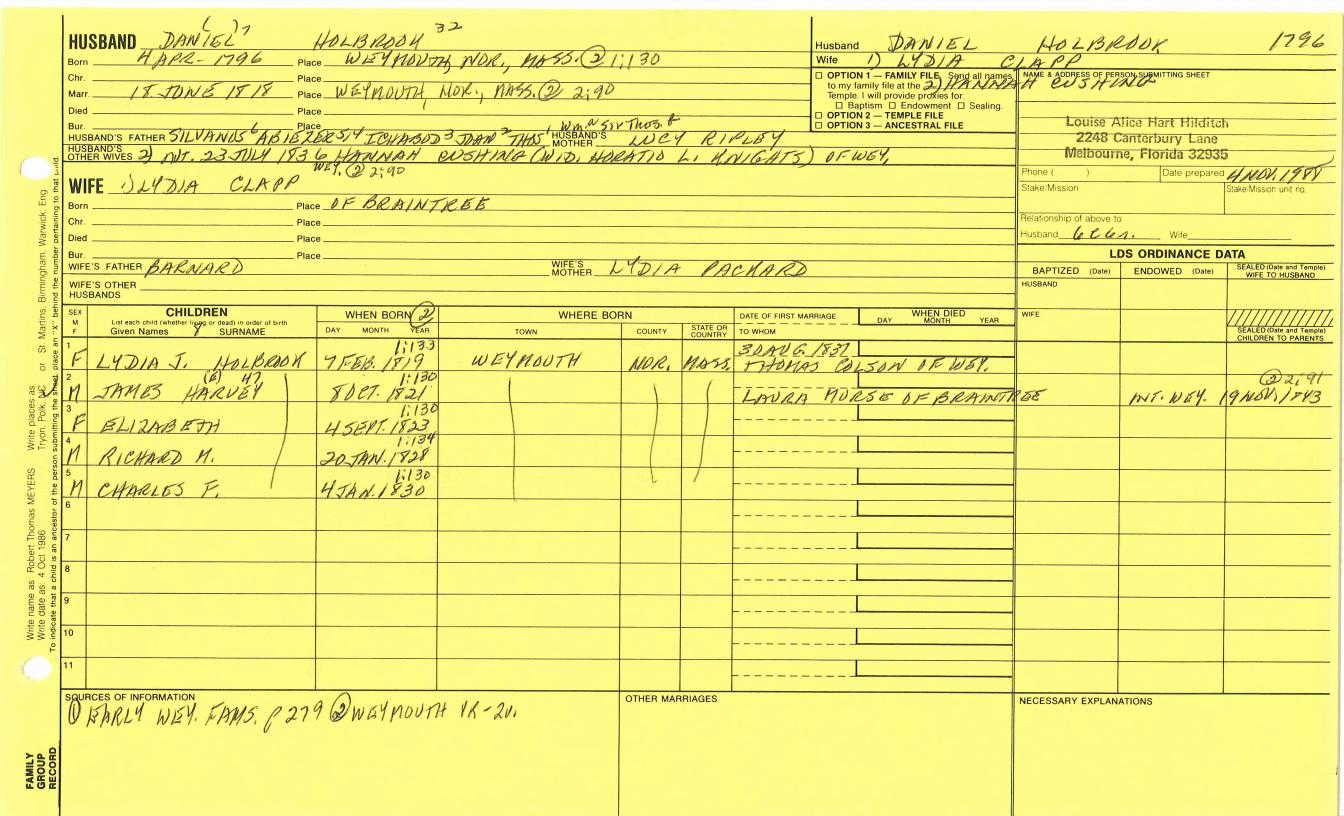 ( )7 32
HUSBAND DANIEL HOLBROOK
Born 4 APR- 1796 Place WEYMOUTH, NOR., MASS. ② 1:130
Chr. Place
Marr. 18 JUNE 1818 Place WEYMOUTH, NOR., MASS. ② 2:90
Died Place
Bur. Place
HUSBAND'S FATHER SILVANUS 6 ABIEZER 5,4 ICHABOD 3 JOHN 2 THOS 1, Wm. a Sir Thos. HUSBAND'S MOTHER LUCY RIPLEY
HUSBAND'S OTHER WIVES 2) INT. 23 JULY 1836 HANNAH CUSHING (WID. HORATIO L. KNIGHTS) OF WEY.
WEY. ② 2:90
WIFE 1) LYDIA CLAPP
Born Place OF BRAINTREE
Chr. Place
Died Place
Bur. Place
WIFE'S FATHER BARNARD WIFE'S MOTHER LYDIA PACKARD
WIFE'S OTHER HUSBANDS
Husband DANIEL HOLBROOK 1796
Wife 1) LYDIA CLAPP
2) HANNAH CUSHING
☐ OPTION 1 — FAMILY FILE Send all names
to my family file at the
Temple. I will provide proxies for:
☐ Baptism ☐ Endowment ☐ Sealing.
☐ OPTION 2 — TEMPLE FILE
☐ OPTION 3 — ANCESTRAL FILE
NAME & ADDRESS OF PERSON SUBMITTING SHEET
Louise Alice Hart Hilditch
2248 Canterbury Lane
Melbourne, Florida 32935
Phone ( ) Date prepared 4 NOV. 1988
Stake/Mission Stake/Mission unit no.
Relationship of above to
Husband 6C6r. Wife
LDS ORDINANCE DATA
BAPTIZED (Date) ENDOWED (Date) SEALED (Date and Temple) WIFE TO HUSBAND
HUSBAND
WIFE
SEALED (Date and Temple) CHILDREN TO PARENTS
SEX M F CHILDREN WHEN BORN ② WHERE BORN DATE OF FIRST MARRIAGE WHEN DIED
List each child (whether living or dead) in order of birth
Given Names SURNAME DAY MONTH YEAR TOWN COUNTY STATE OR COUNTRY TO WHOM DAY MONTH YEAR
1 1:133 30 AUG. 1837
F LYDIA J. HOLBROOK 7 FEB. 1819 WEYMOUTH NOR. MASS. THOMAS COLSON OF WEY.
2 (8) 47 1:130 ② 2:91
M JAMES HARVEY 8 OCT. 1821 LAURA MORSE OF BRAINTREE INT. WEY. 19 NOV. 1843
3 1:130
F ELIZABETH 4 SEPT. 1823
4 1:134
M RICHARD M. 20 JAN. 1828
5 1:130
M CHARLES F. 4 JAN. 1830
6
7
8
9
10
11
SOURCES OF INFORMATION
① EARLY WEY. FAMS. p 279 ② WEYMOUTH VR-2v.
OTHER MARRIAGES
NECESSARY EXPLANATIONS
Write name as: Robert Thomas MEYERS Write places as: Tryon, Polk, NC or St. Martins, Birmingham, Warwick, Eng
Write date as: 4 Oct 1986
To indicate that a child is an ancestor of the person submitting the sheet, place an "X" behind the number pertaining to that child.
FAMILY GROUP RECORD